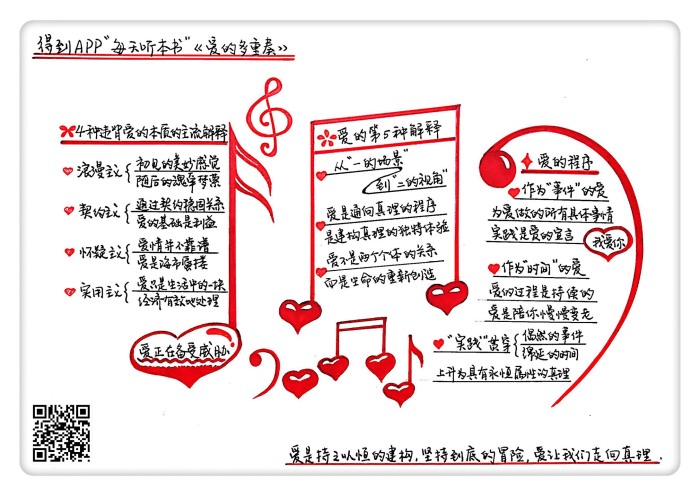 得到APP"每天听本书"《爱的多重奏》
4种违背爱的本质的主流解释
浪漫主义
初见的美妙感觉
随后的魂牵梦萦
契约主义
通过契约稳固关系
爱的基础是利益
怀疑主义
爱情并不靠谱
爱是海市蜃楼
实用主义
爱只是生活中的一块
经济有效地处理
爱正在备受威胁
爱的第5种解释
从"一的场景"
到"二的视角"
爱是通向真理的程序
是建构真理的独特体验
爱不是两个个体的关系
而是生命的重新创造
爱的程序
作为"事件"的爱
为爱做的所有具体事情
实践是爱的宣言
我爱你
作为"时间"的爱
爱的过程是持续的
爱是陪你慢慢变老
"实践"贯穿
偶然的事件
绵延的时间
上升为具有永恒属性的真理
爱是持之以恒的建构,坚持到底的冒险,爱让我们走向真理.